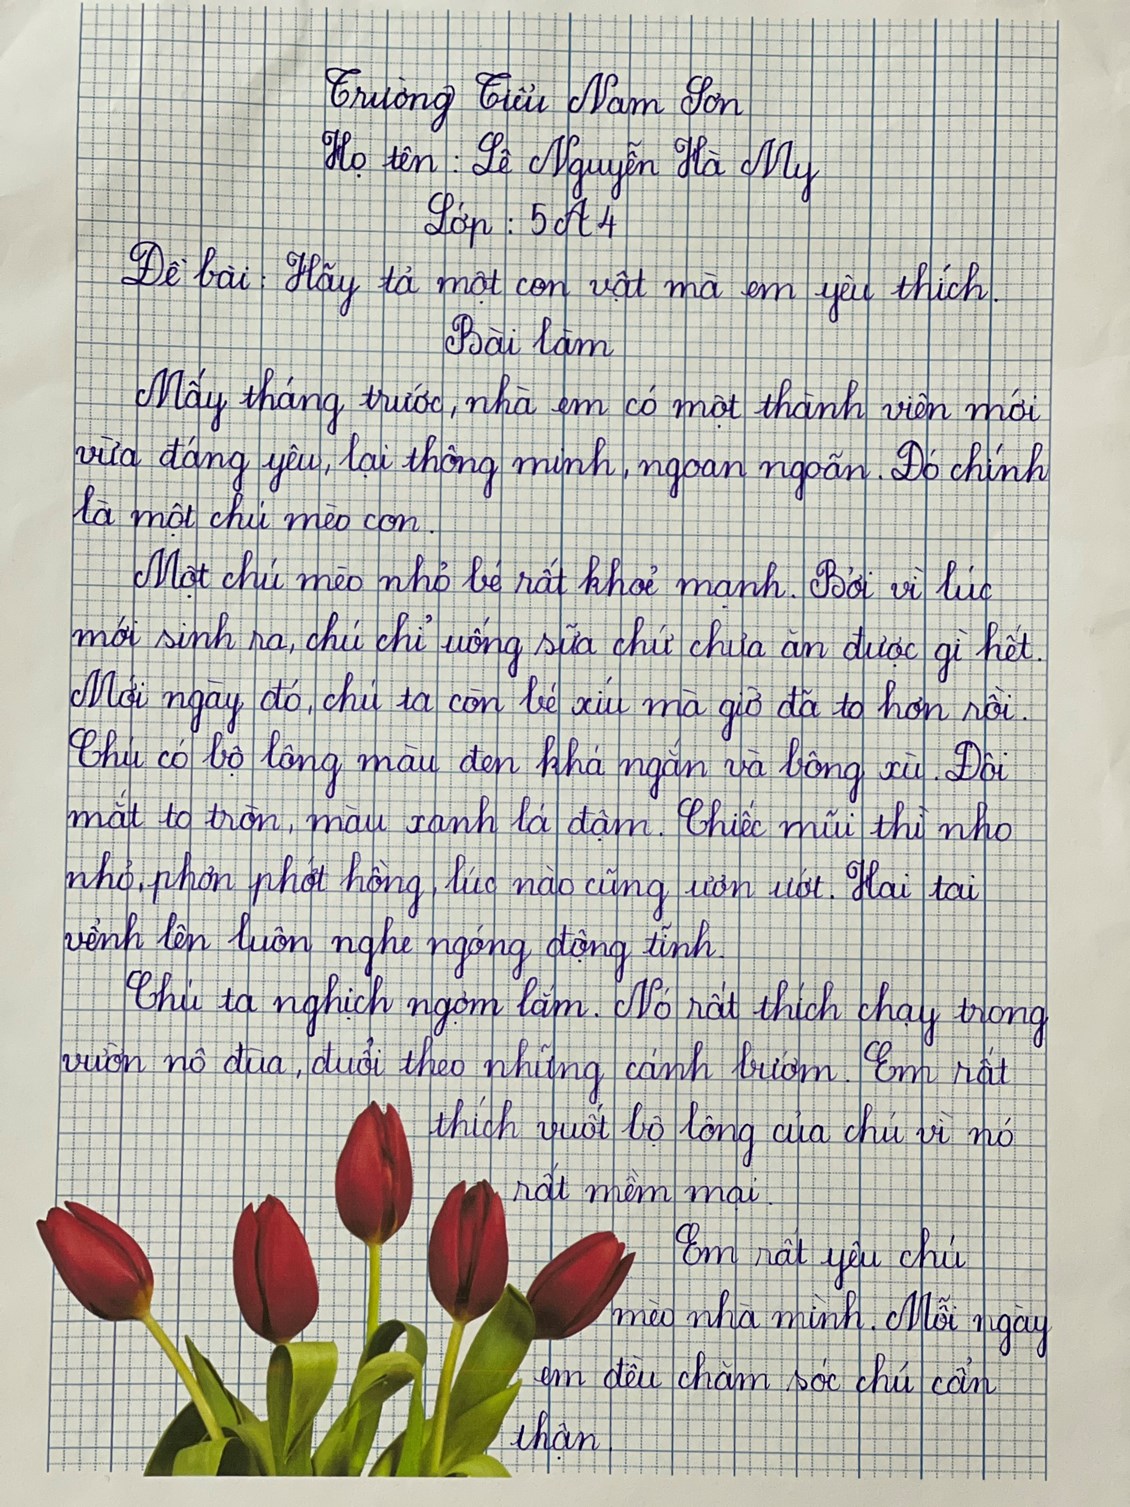 Trường Tiểu Nam Sơn
Họ tên : Lê Nguyễn Hà My
Lớp : 5A4
Đề bài : Hãy tả một con vật mà em yêu thích.
Bài làm
Mấy tháng trước, nhà em có một thành viên mới
vừa đáng yêu, lại thông minh, ngoan ngoãn. Đó chính
là một chú mèo con.
Một chú mèo nhỏ bé rất khoẻ mạnh. Bởi vì lúc
mới sinh ra, chú chỉ uống sữa chứ chưa ăn được gì hết.
Mới ngày đó, chú ta còn bé xíu mà giờ đã to hơn rồi.
Chú có bộ lông màu đen khá ngắn và bông xù. Đôi
mắt to tròn, màu xanh lá đậm. Chiếc mũi thì nho
nhỏ, phơn phớt hồng, lúc nào cũng ươn ướt. Hai tai
vểnh lên luôn nghe ngóng động tĩnh.
Chú ta nghịch ngợm lắm. Nó rất thích chạy trong
vườn nô đùa, đuổi theo những cánh bướm. Em rất
thích vuốt bộ lông của chú vì nó
rất mềm mại.
Em rất yêu chú
mèo nhà mình. Mỗi ngày
em đều chăm sóc chú cẩn
thận.